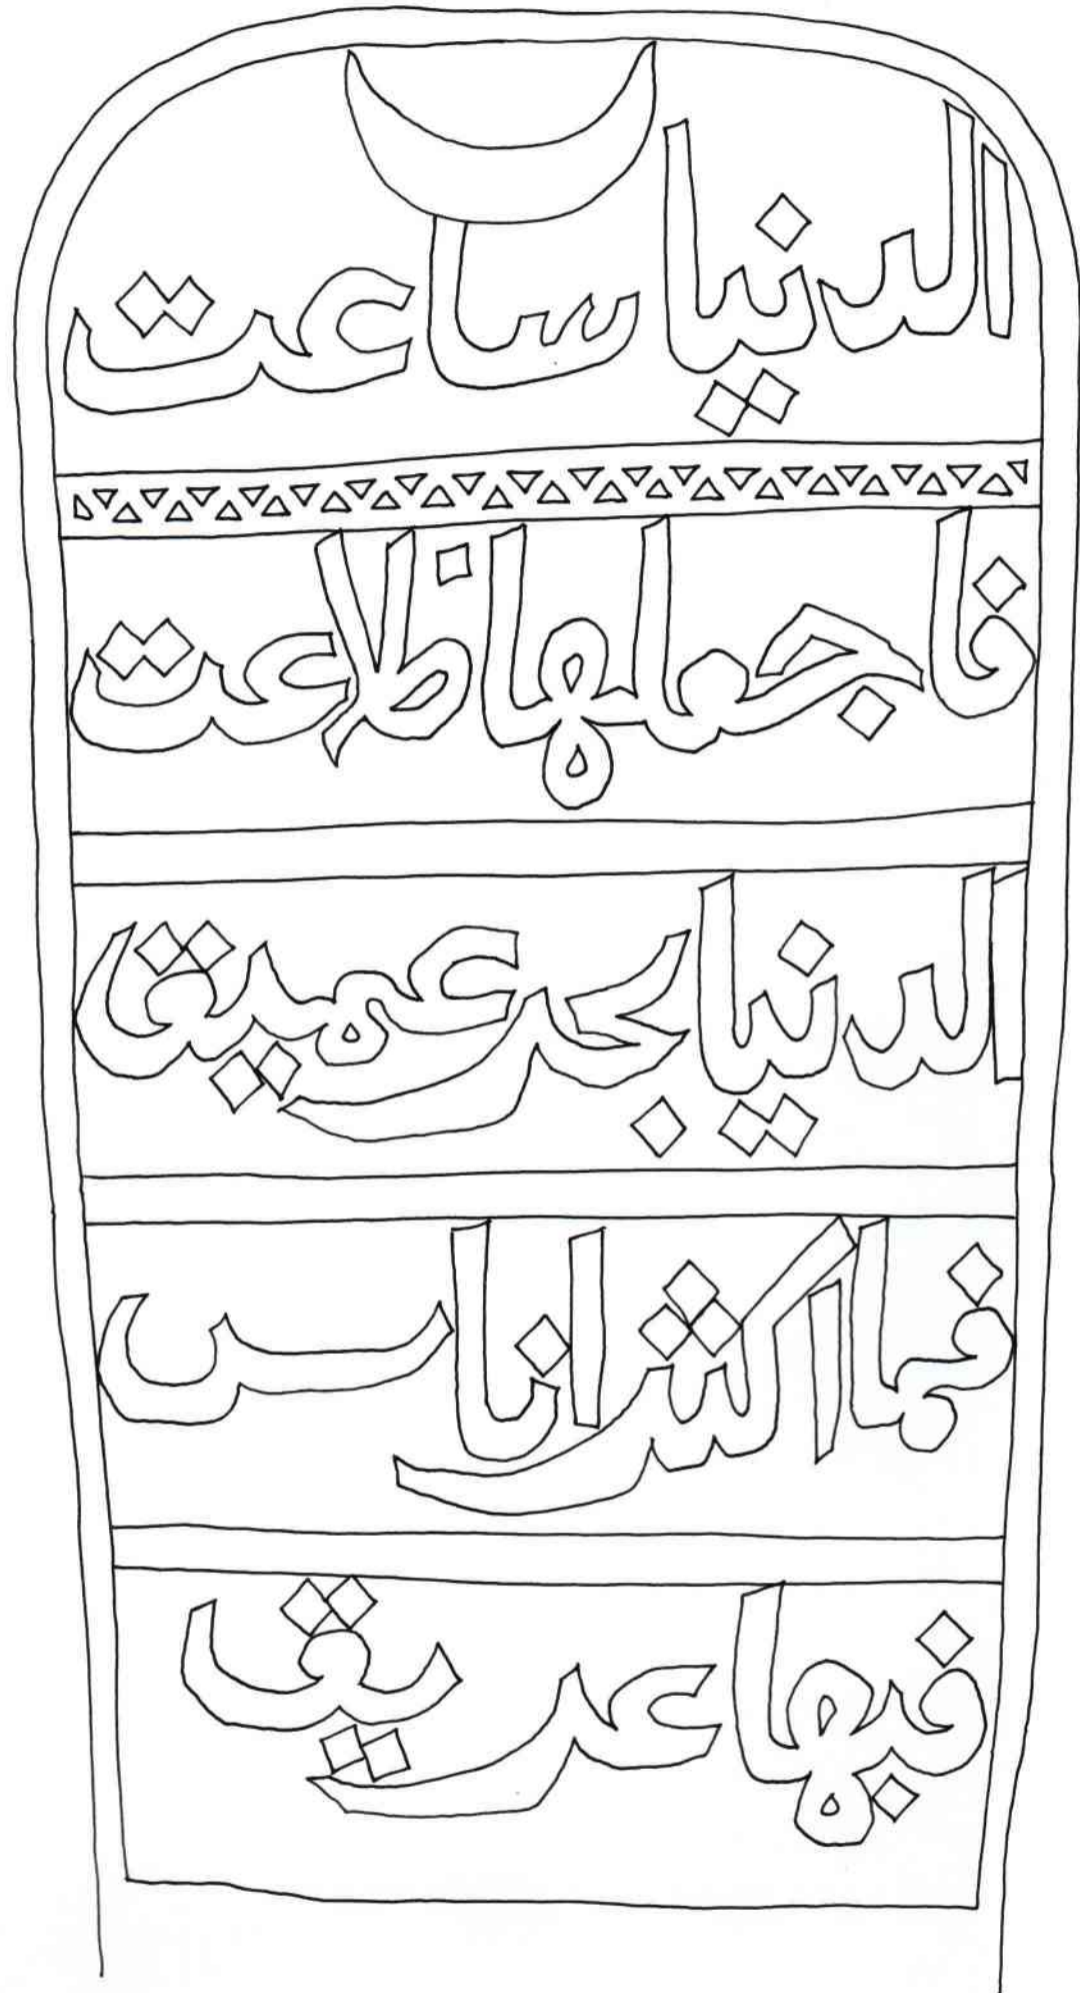 الدنيا ساعت
فاجعلها ظاعت
الدنيا بحر عميق
فما اكثر اناس
فيها عريق